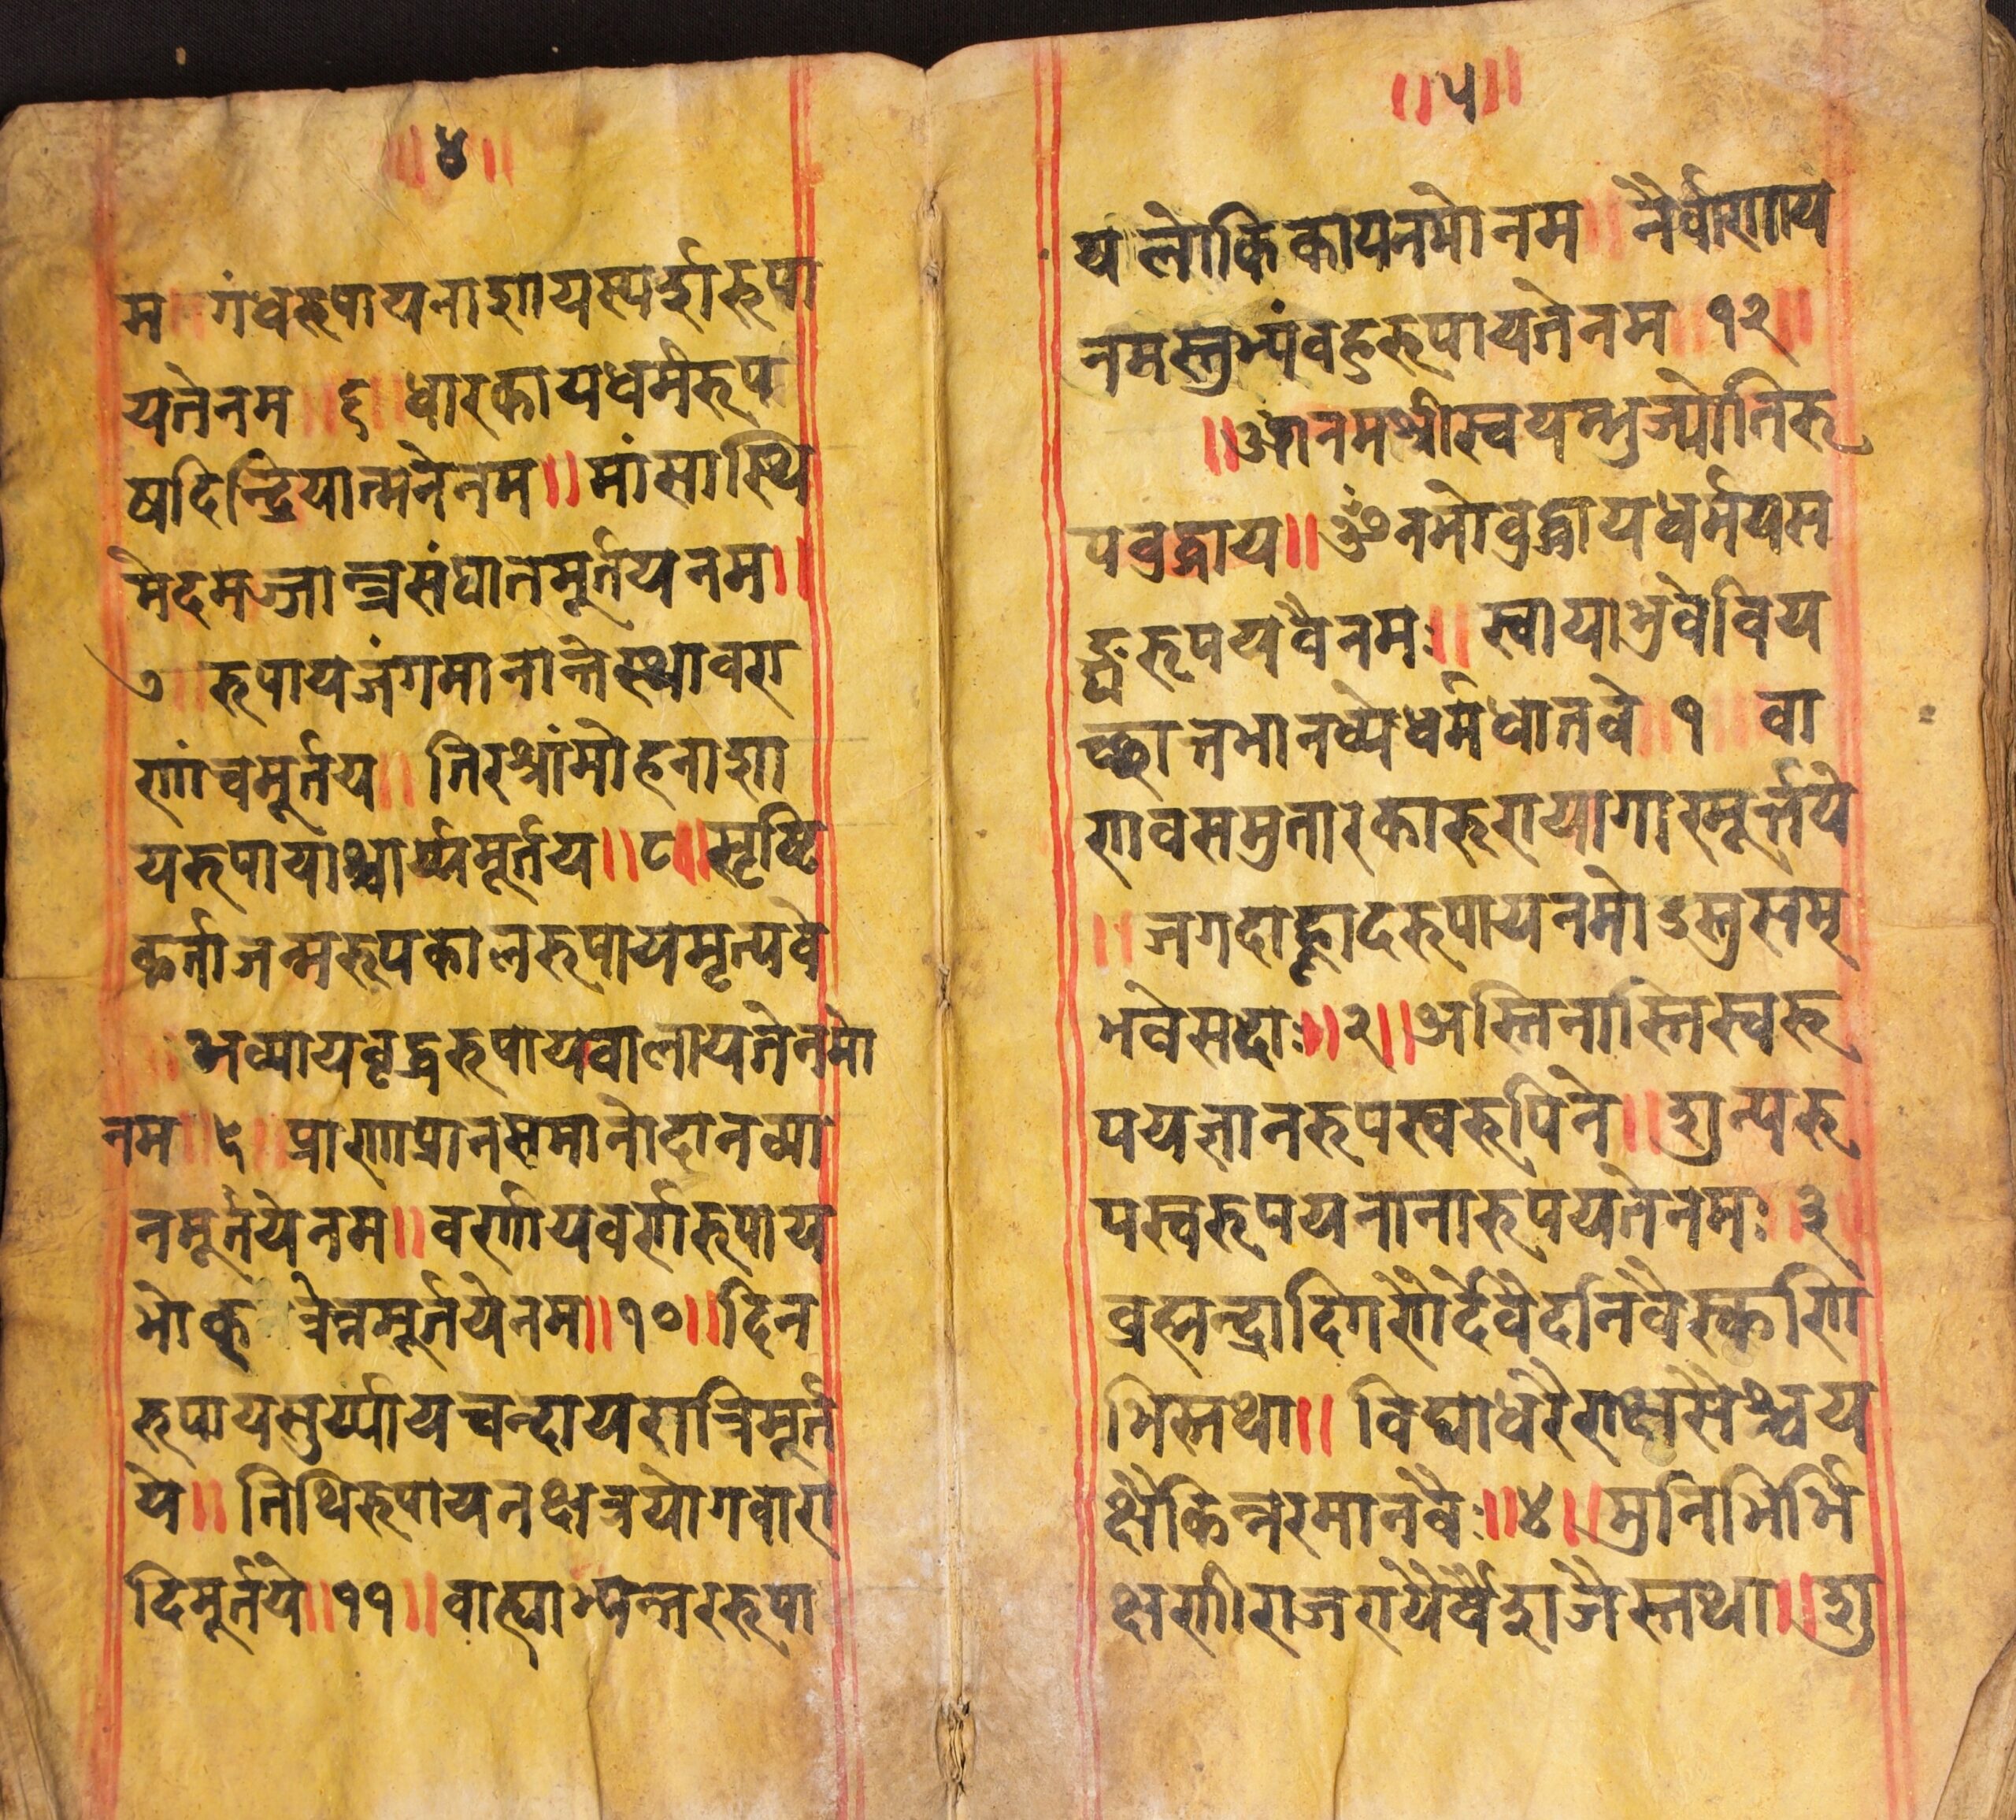 ॥४॥
म ॥ गंधरूपायनाशायस्पर्शरूपा
यतेनम ॥ ६ ॥ धारकायधर्मरूप
षदिन्द्रियात्मनेनम॥ मांसास्थि
मेदमज्जान्त्रसंघातमूर्तयनम॥
७ ॥ रूपायजंगमानान्तेस्थावरा
णांचमूर्तय ॥ तिरश्चांमोहनाशा
यरूपायाश्चार्य्यमूर्तय॥ ८॥ सृष्टि
कर्ताजन्मरूपकालरूपायमृत्यवे
॥ भव्यायवृद्धरूपायवालायतेनमो
नम ॥ ९ ॥ प्राणप्रानसमानोदानव्या
नमूर्तयेनम॥ वर्णायवर्णरूपाय
भोक्तृ त्रेन्नमूर्तयेनम॥१०॥दिन
रूपायसुर्य्यायचन्दायरात्रिमूर्त
ये॥ तिथिरूपायनक्षत्रयोगवारा
दिमूर्तये॥११॥ वाह्याभ्यन्तररूपा
॥५॥
यलोकिकायनमोनम ॥ नैर्वाणाय
नमस्तुभ्यंवहुरूपायतेनम ॥१२॥
॥ओंनमश्रीस्वयम्भुज्योतिरू
पवुद्धाय॥ ॐनमोवुद्धायधर्मयस
ङ्घरूपयवैनमः॥ स्वायाभुवेविय
च्छान्तभानव्येधर्मधातवे ॥१॥ वा
णवसमुतारकारूरायागारमूर्त्तये
॥ जगदाह्लादरूपायनमोऽस्तुसम्
भवेसदाः॥२॥अस्तिनास्तिस्वरू
पयज्ञानरूपस्वरूपिने॥ शुन्यरू
पस्वरूपयनानारूपयतेनमः॥३
व्रह्मन्द्रादिगणैर्देवैदनिवैस्करिण
भिस्तथा॥ विद्याधरैराक्षसैश्चय
क्षैकिन्नरमानवैः॥४॥ मुनिभिर्भि
क्षणीराजरायैर्वैदाजैस्तथा॥ शु